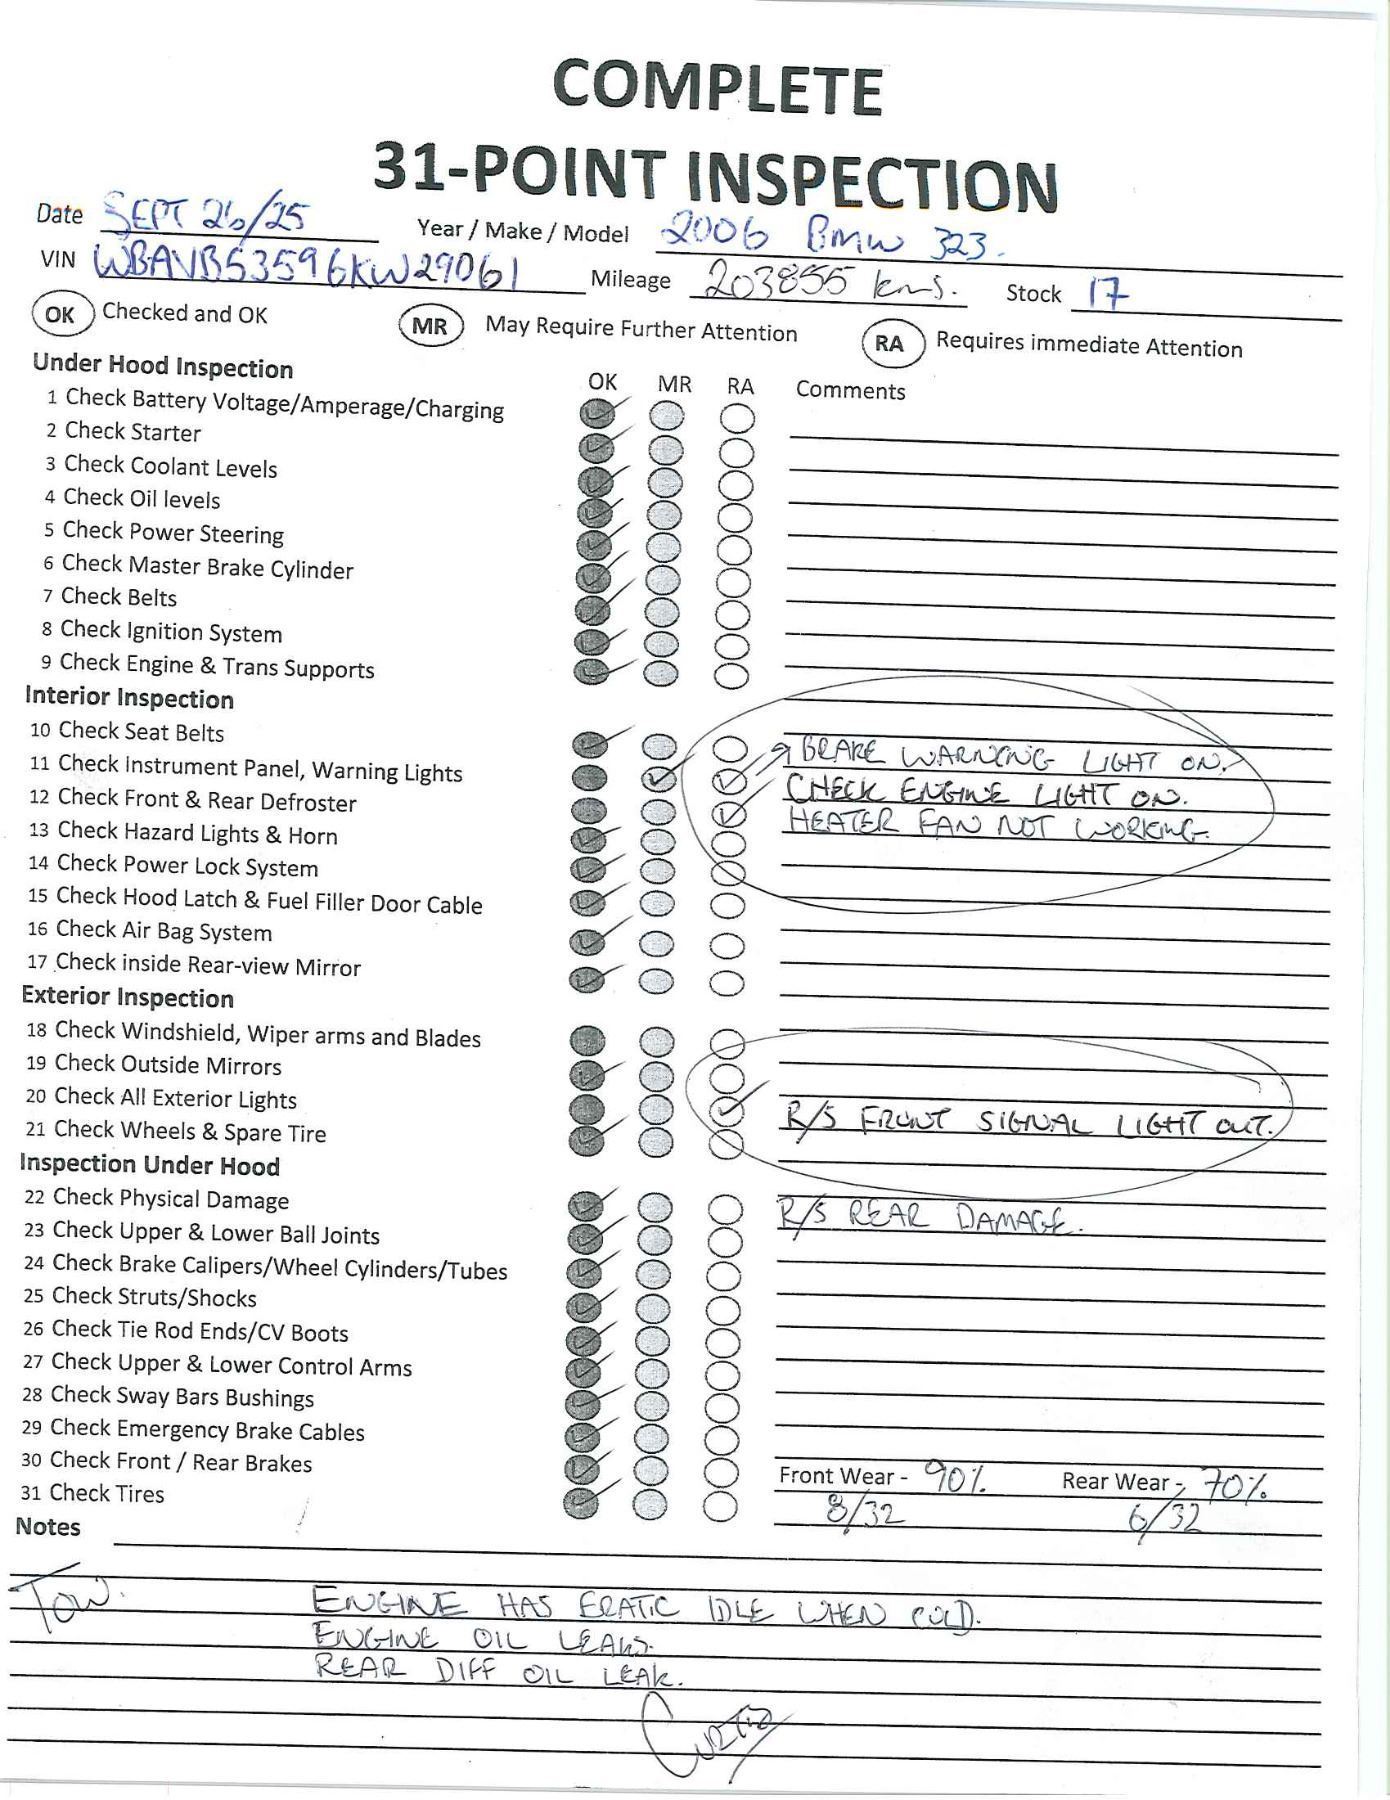 COMPLETE
31-POINT INSPECTION
Date SEPT 26/25 Year / Make / Model 2006 BMW 323.
VIN WBAVB53596KW29061 Mileage 203855 kms. Stock 17
OK Checked and OK MR May Require Further Attention RA Requires immediate Attention
Under Hood Inspection OK MR RA Comments
1 Check Battery Voltage/Amperage/Charging
2 Check Starter
3 Check Coolant Levels
4 Check Oil levels
5 Check Power Steering
6 Check Master Brake Cylinder
7 Check Belts
8 Check Ignition System
9 Check Engine & Trans Supports
Interior Inspection
10 Check Seat Belts BRAKE WARNING LIGHT ON.
11 Check instrument Panel, Warning Lights CHECK ENGINE LIGHT ON.
12 Check Front & Rear Defroster HEATER FAN NOT WORKING.
13 Check Hazard Lights & Horn
14 Check Power Lock System
15 Check Hood Latch & Fuel Filler Door Cable
16 Check Air Bag System
17 Check inside Rear-view Mirror
Exterior Inspection
18 Check Windshield, Wiper arms and Blades
19 Check Outside Mirrors
20 Check All Exterior Lights R/S FRONT SIGNAL LIGHT OUT.
21 Check Wheels & Spare Tire
Inspection Under Hood
22 Check Physical Damage R/S REAR DAMAGE.
23 Check Upper & Lower Ball Joints
24 Check Brake Calipers/Wheel Cylinders/Tubes
25 Check Struts/Shocks
26 Check Tie Rod Ends/CV Boots
27 Check Upper & Lower Control Arms
28 Check Sway Bars Bushings
29 Check Emergency Brake Cables
30 Check Front / Rear Brakes Front Wear - 90% Rear Wear - 70%
31 Check Tires 8/32 6/32
Notes
TOW. ENGINE HAS ERATIC IDLE WHEN COLD.
ENGINE OIL LEAKS.
REAR DIFF OIL LEAK.
CURTIS